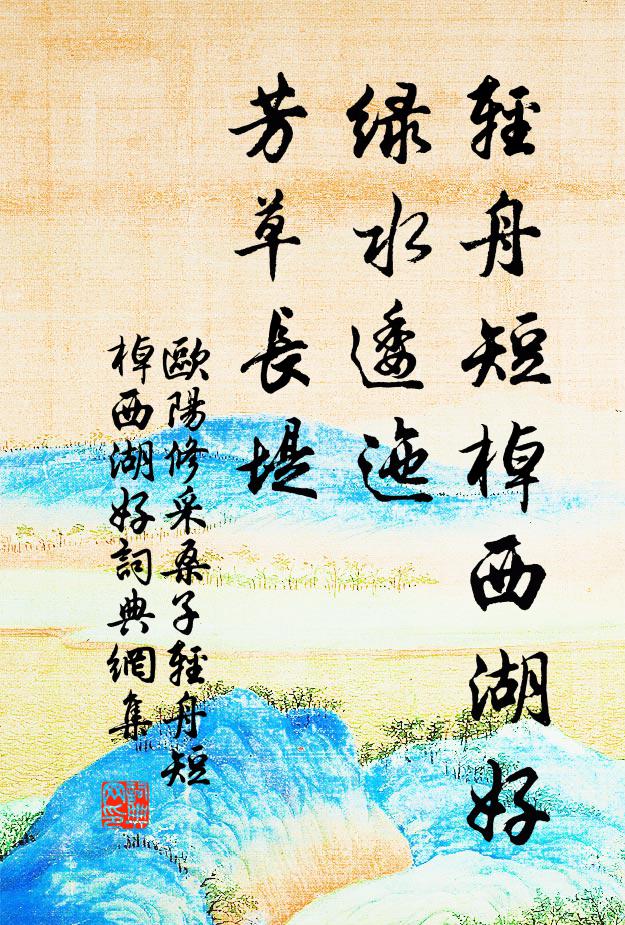 輕舟短棹西湖好
緑水逶迤
芳草長堤
歐陽修采桑子輕舟短
棹西湖好詞典網集